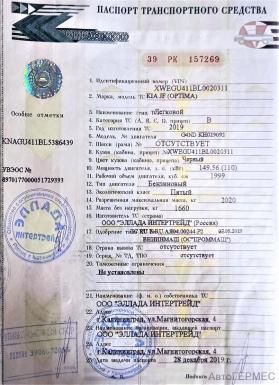 ПАСПОРТ ТРАНСПОРТНОГО СРЕДСТВА
39 РК 157269
1. Идентификационный номер (VIN)
XWEGU411BL0020311
2. Марка, модель ТС KIA JF (OPTIMA)
Особые отметки
3. Наименование (тип ТС) Легковой
4. Категория ТС (A, B, C, D, прицеп) B
5. Год изготовления ТС 2019
KNAGU411BL5386439
6. Модель, № двигателя G4ND KH019092
7. Шасси (рама) № ОТСУТСТВУЕТ
8. Кузов (кабина, прицеп) № XWEGU411BL0020311
9. Цвет кузова (кабины, прицепа) Черный
10. Мощность двигателя, л. с. (кВт) 149.56 (110)
УВЭОС №
11. Рабочий объем двигателя, куб. см 1999
12. Тип двигателя Бензиновый
13. Экологический класс Пятый
14. Разрешенная максимальная масса, кг 2020
15. Масса без нагрузки, кг 1660
16. Изготовитель ТС (страна)
ООО "ЭЛЛАДА ИНТЕРТРЕЙД" (Россия)
17. Одобрение типа ТС №
18. Страна вывоза ТС отсутствует
19. Серия, № ТД, ТПО отсутствует
20. Таможенные ограничения
Не установлены
ЭЛЛАДА ИНТЕРТРЕЙД
21. Наименование (ф. и. о.) собственника ТС
ООО "ЭЛЛАДА ИНТЕРТРЕЙД"
22. Адрес
г.Калининград, ул.Магнитогорская, 4
23. Наименование организации, выдавшей паспорт
ООО "ЭЛЛАДА ИНТЕРТРЕЙД"
24. Адрес
г.Калининград, ул.Магнитогорская, 4
25. Дата выдачи паспорта 28 декабря 2019 г.
М. П.
Подпись
АвтоГЕРМЕС